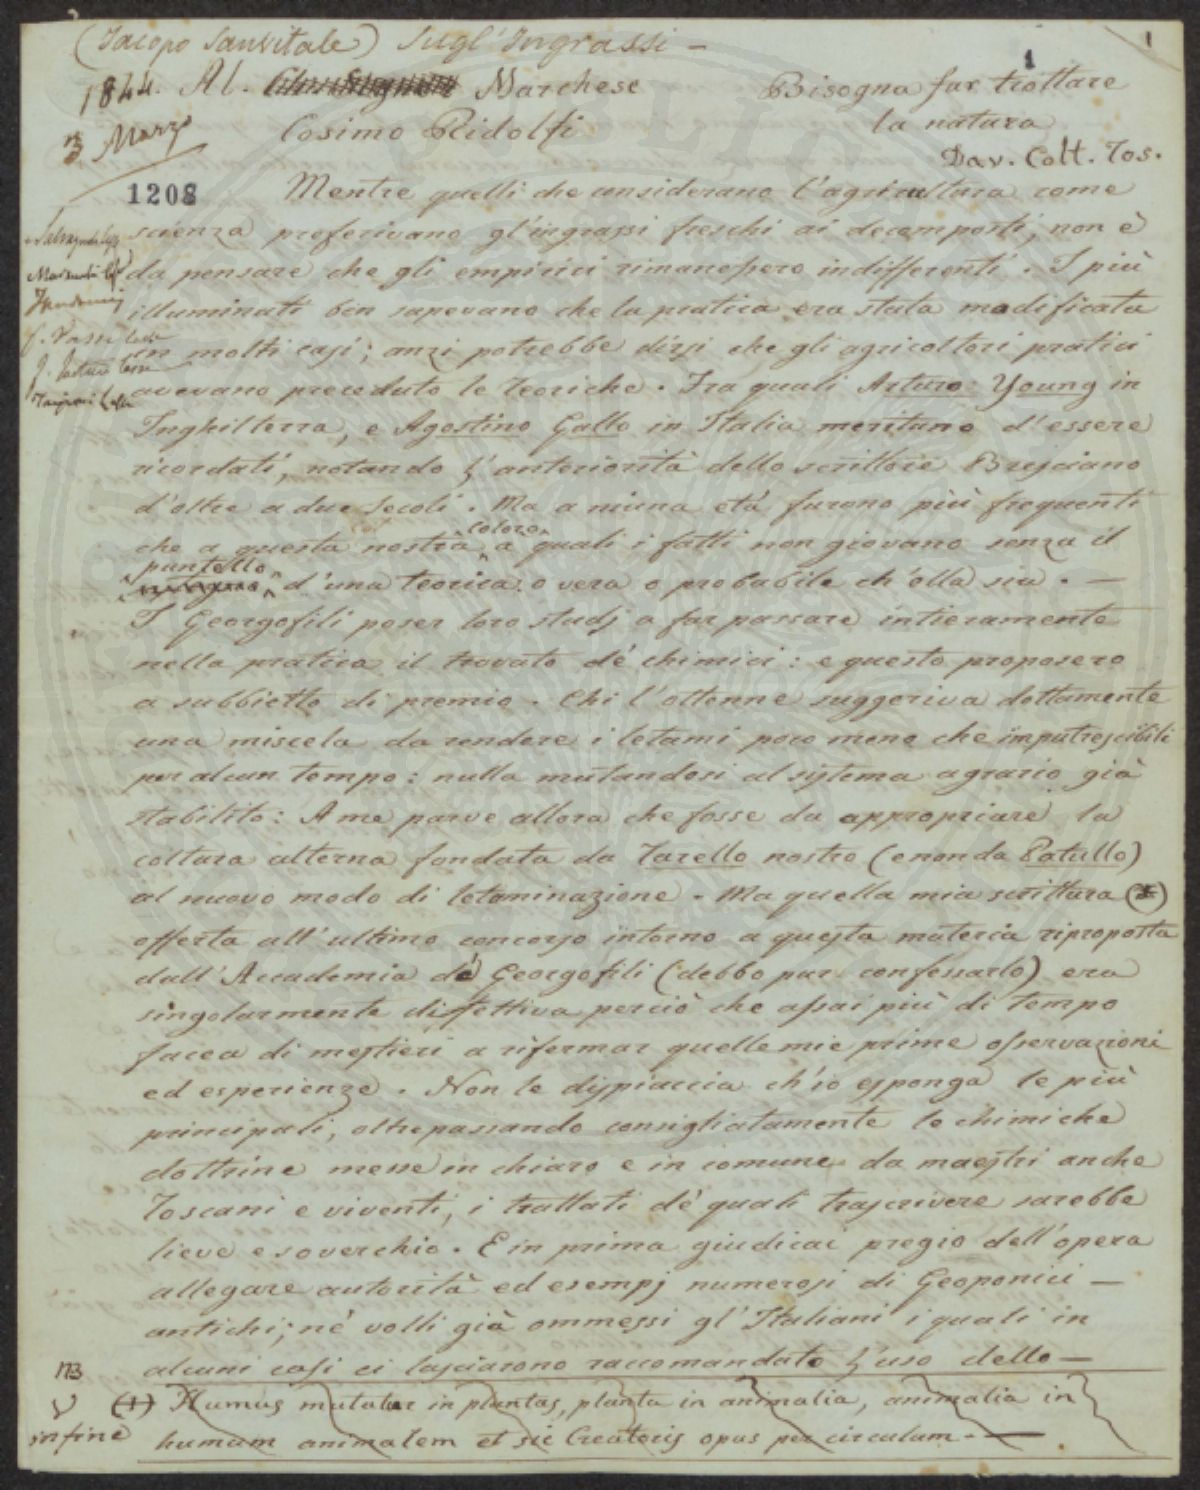 (Jacopo Sanvitale) Sugl'Ingrassi -
1
1
1844. Al Marchese
Cosimo Ridolfi
3 Marzo
Bisogna far trottare
la natura
Dav. Colt. Tos.
1208
Mentre quelli che considerano l'agricultura come
scienza preferivano gl'ingrassi freschi ai decomposti, non è
da pensare che gli empirici rimanessero indifferenti. I più
illuminati ben sapevano che la pratica era stata modificata
in molti casi; anzi potrebbe dirsi che gli agricoltori pratici
avevano preceduto le teoriche. Fra quali Arturo Young in
Inghilterra, e Agostino Gallo in Italia meritano d'essere
ricordati, notando l'anteriorità dello scrittore Bresciano
d'oltre a due secoli. Ma a niuna età furono più frequenti
che a questa nostra coloro a quali i fatti non giovano senza il
puntello d'una teorica o vera o probabile ch'ella sia. -
I Georgofili poser loro studj a far passare intieramente
nella pratica il trovato de' chimici: e questo proposero
a subbietto di premio. Chi l'ottenne suggeriva dottamente
una miscela da rendere i letami poco meno che imputrescibili
per alcun tempo: nulla mutandosi al sistema agrario già
stabilito: A me parve allora che fosse da appropriare la
coltura alterna fondata da Tarello nostro (e non da Patullo)
al nuovo modo di letaminazione. Ma quella mia scrittura
offerta all'ultimo concorso intorno a questa materia riproposta
dall'Accademia de' Georgofili (debbo pur confessarlo) era
singolarmente difettiva perciò che assai più di tempo
facea di mestieri a rifermar quelle mie prime osservazioni
ed esperienze. Non le dispiaccia ch'io esponga le più
principali, oltrepassando consigliatamente le chimiche
dottrine messe in chiaro e in comune da maestri anche
Toscani e viventi, i trattati de' quali trascrivere sarebbe
lieve e soverchio. E in prima giudicai pregio dell'opera
allegare autorità ed esempj numerosi di Geoponici -
antichi; nè volli già ommessi gl'Italiani i quali in
alcuni casi ci lasciarono raccomandato l'uso dello -
NB
infine
(1) Humus mutatur in plantas, planta in animalia, animalia in
humum animalem et sic Creatoris opus per circulum. -